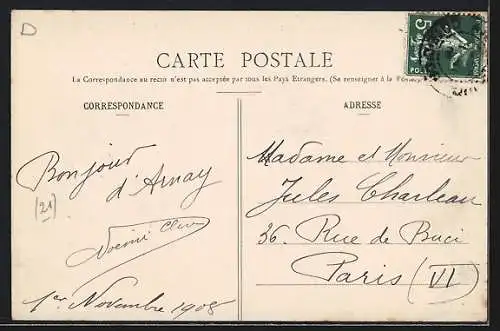 D
CARTE POSTALE
La Correspondance au recto n'est pas acceptée par tous les Pays Etrangers. (Se renseigner à la
CORRESPONDANCE
ADRESSE
Bonjour
d'Arnay
(21)
Noémi
1er Novembre 1908
Madame et Monsieur
Jules Charleau
36. Rue de Buci
Paris (VI)
5